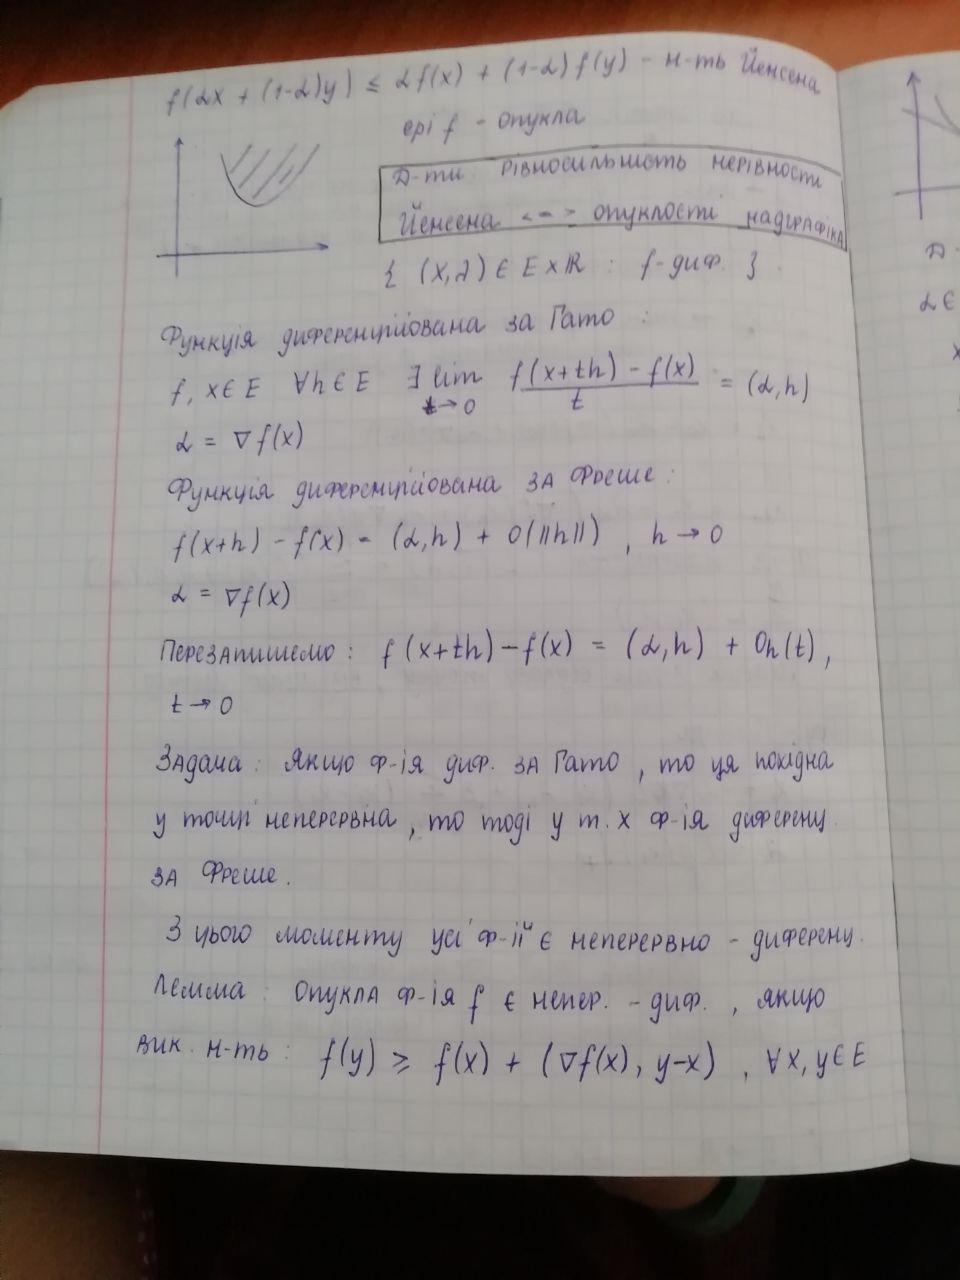 f(αx + (1-α)y) ≤ αf(x) + (1-α)f(y) - н-ть Йенсена
ері f - опукла
Д-ти рівносильність нерівности
Йенсена <=> опуклості надграфіка
{ (x, λ) ∈ E x ℝ : f-диф. }
Функція диференційована за Гато :
f, x ∈ E ∀h ∈ E ∃ lim t→0 (f(x+th) - f(x))/t = (α, h)
α = ∇f(x)
Функція диференційована за Фреше :
f(x+h) - f(x) = (α, h) + o(||h||) , h → 0
α = ∇f(x)
Перезапишемо : f(x+th) - f(x) = (α, h) + oh(t) ,
t → 0
Задача : якщо ф-ія диф. за Гато , то ця похідна
у точці неперервна , то тоді у т. x ф-ія диференц.
за Фреше .
З цього моменту усі ф-ії є неперервно - диференц.
Лемма : опукла ф-ія f є непер. - диф. , якщо
вик. н-ть : f(y) ≥ f(x) + (∇f(x), y-x) , ∀x, y ∈ E
Д
α ∈
x